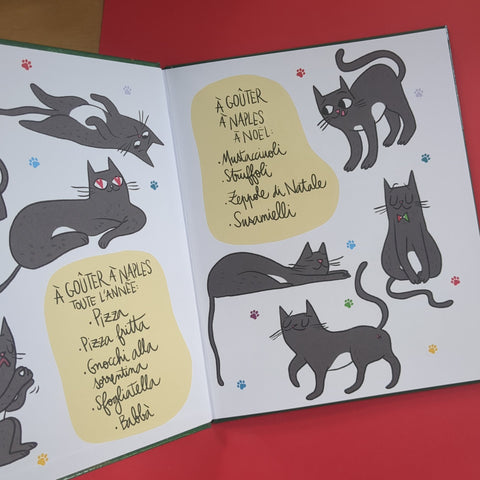 À GOÛTER À NAPLES
TOUTE L'ANNÉE:
• Pizza
• Pizza fritta
• Gnocchi alla
sorrentina
• Sfogliatella
• Babbà
À GOÛTER
À NAPLES
À NOËL:
• Mustaccuoli
Struffoli
• Zeppole di Natale
• Susamielli